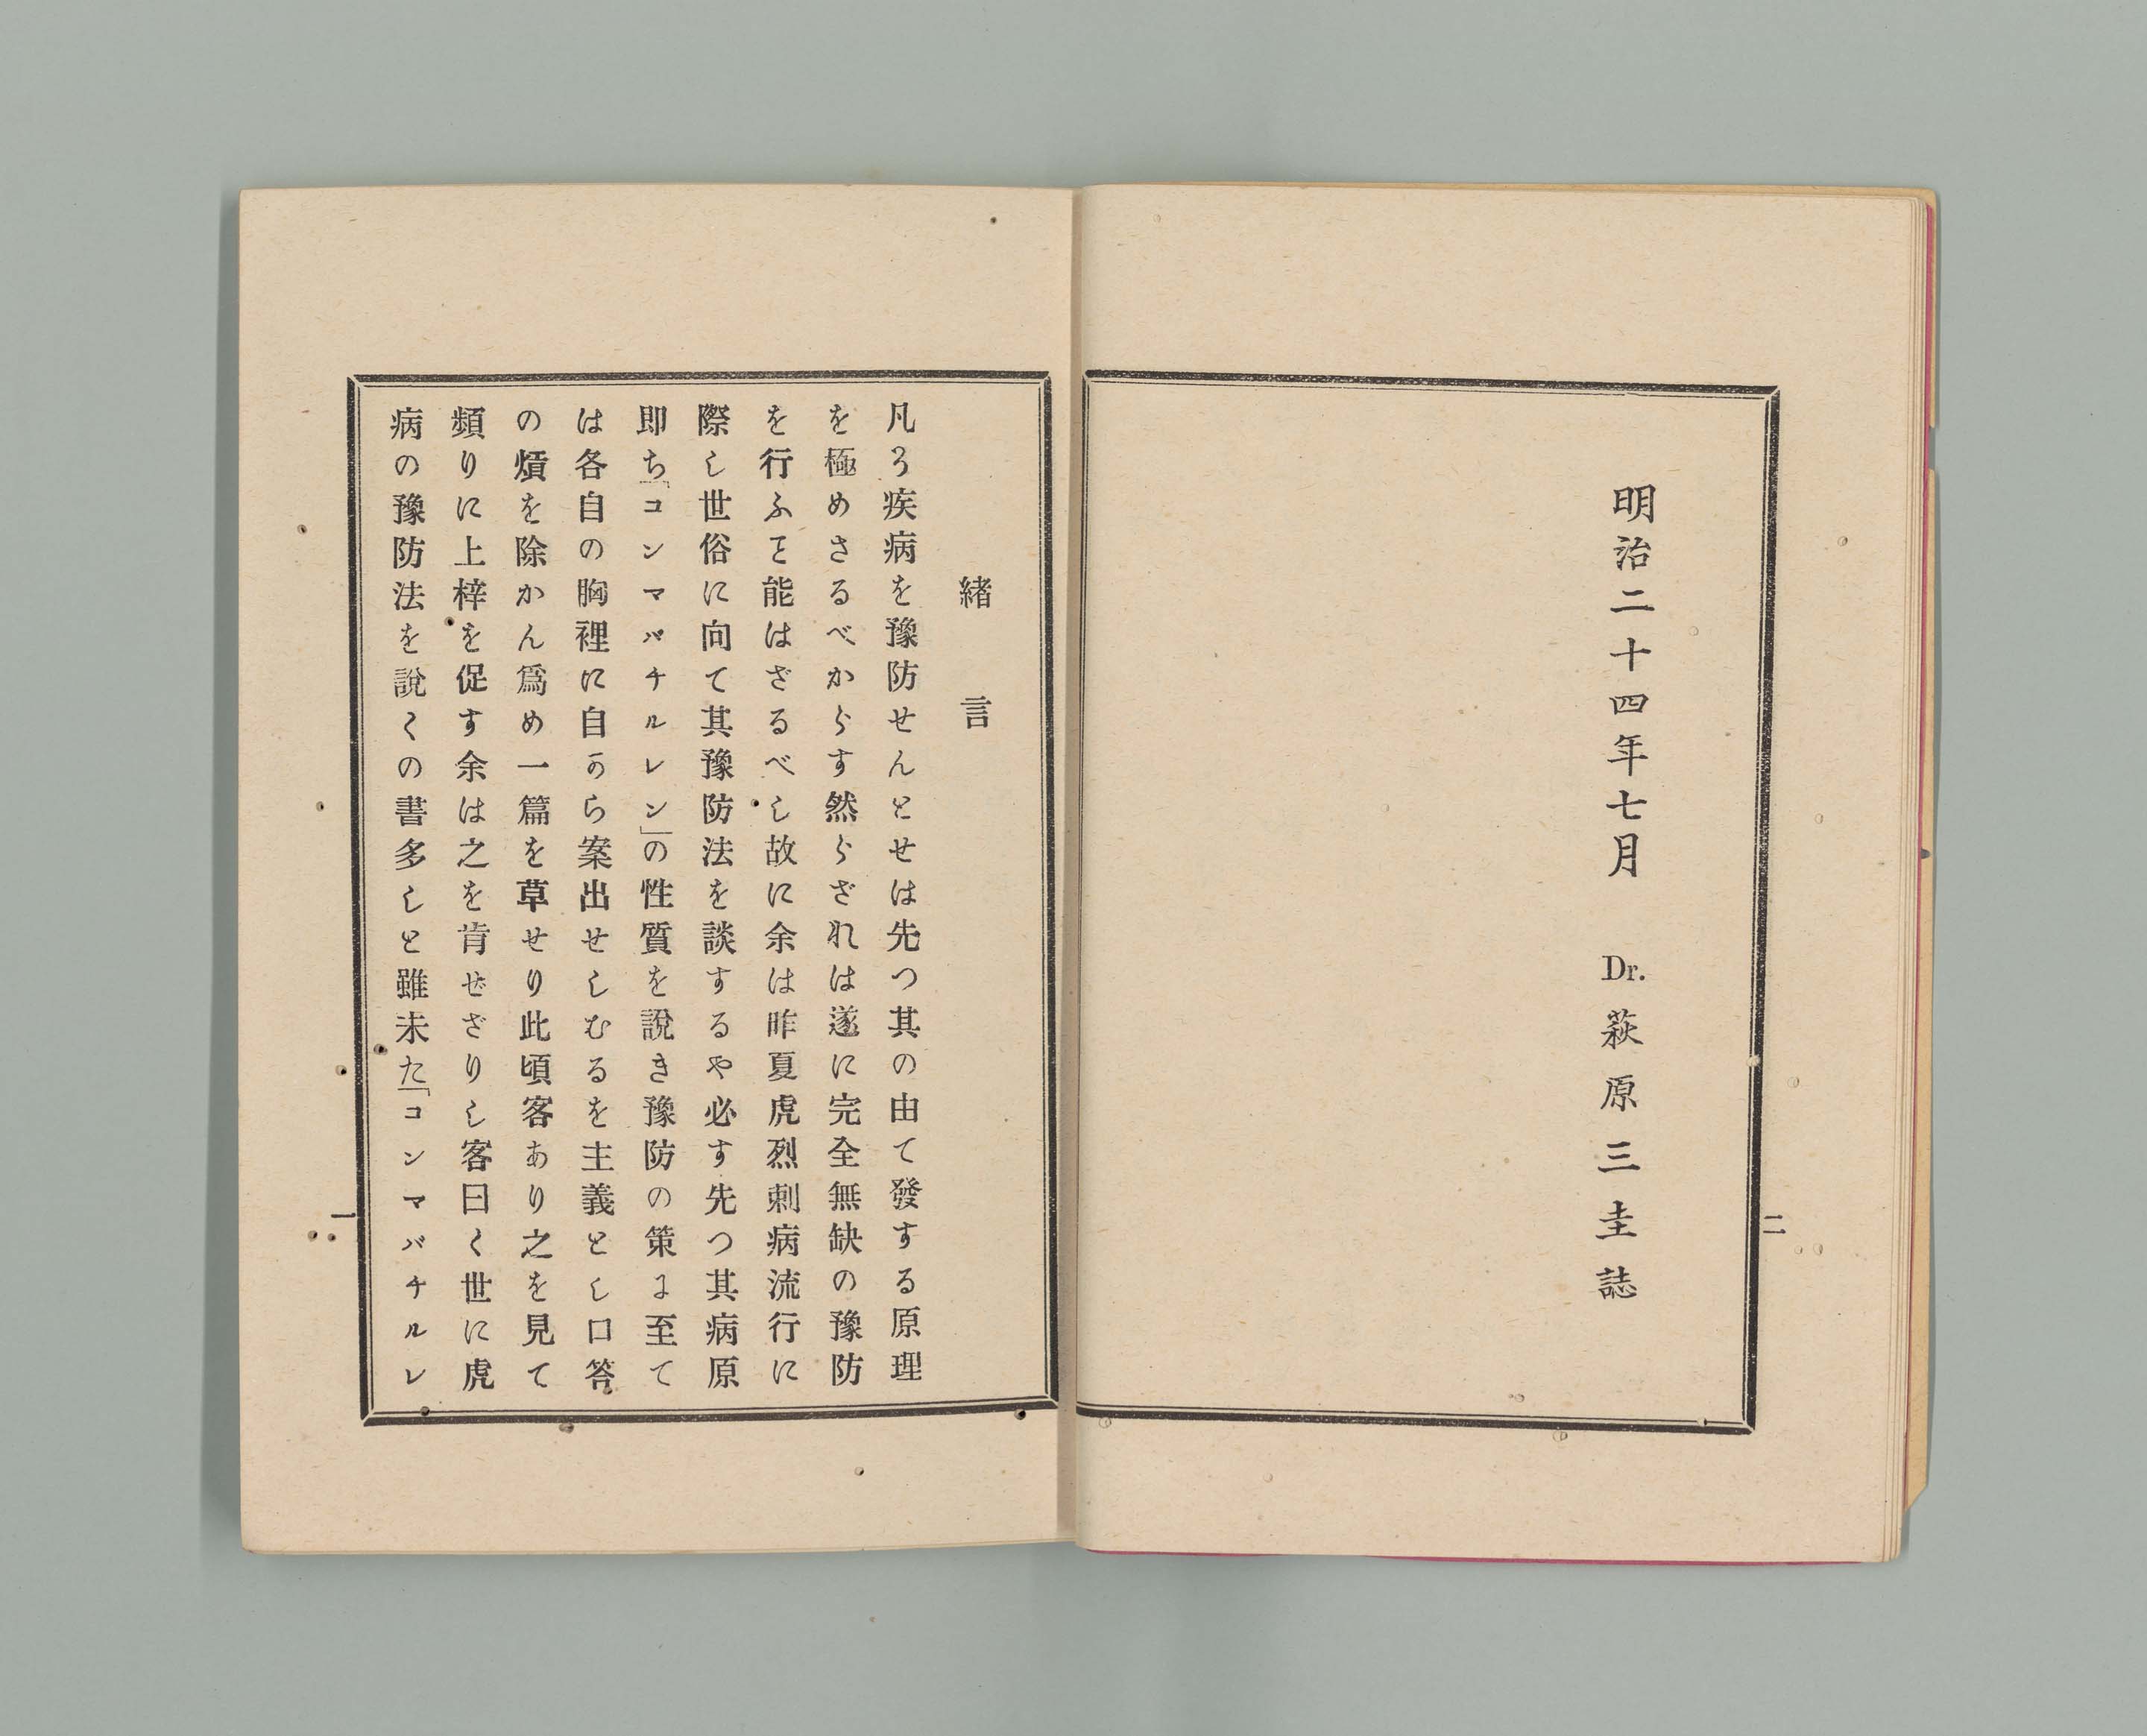 明治二十四年七月 Dr. 萩原三圭誌
二
緒言
凡そ疾病を豫防せんとせは先つ其の由て發する原理
を極めさるべからす然らざれは遂に完全無缺の豫防
を行ふヿ能はざるべし故に余は昨夏虎烈剌病流行に
際し世俗に向て其豫防法を談するや必す先つ其病原
即ち「コンマバチルレン」の性質を説き豫防の策に至て
は各自の胸裡に自から案出せしむるを主義とし口答
の煩を除かん爲め一篇を草せり此頃客あり之を見て
頻りに上梓を促す余は之を肯せざりし客曰く世に虎
病の豫防法を說くの書多しと雖未た「コンマバチルレ
一